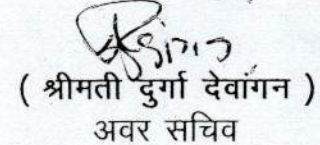 ( श्रीमती दुर्गा देवांगन )
अवर सचिव